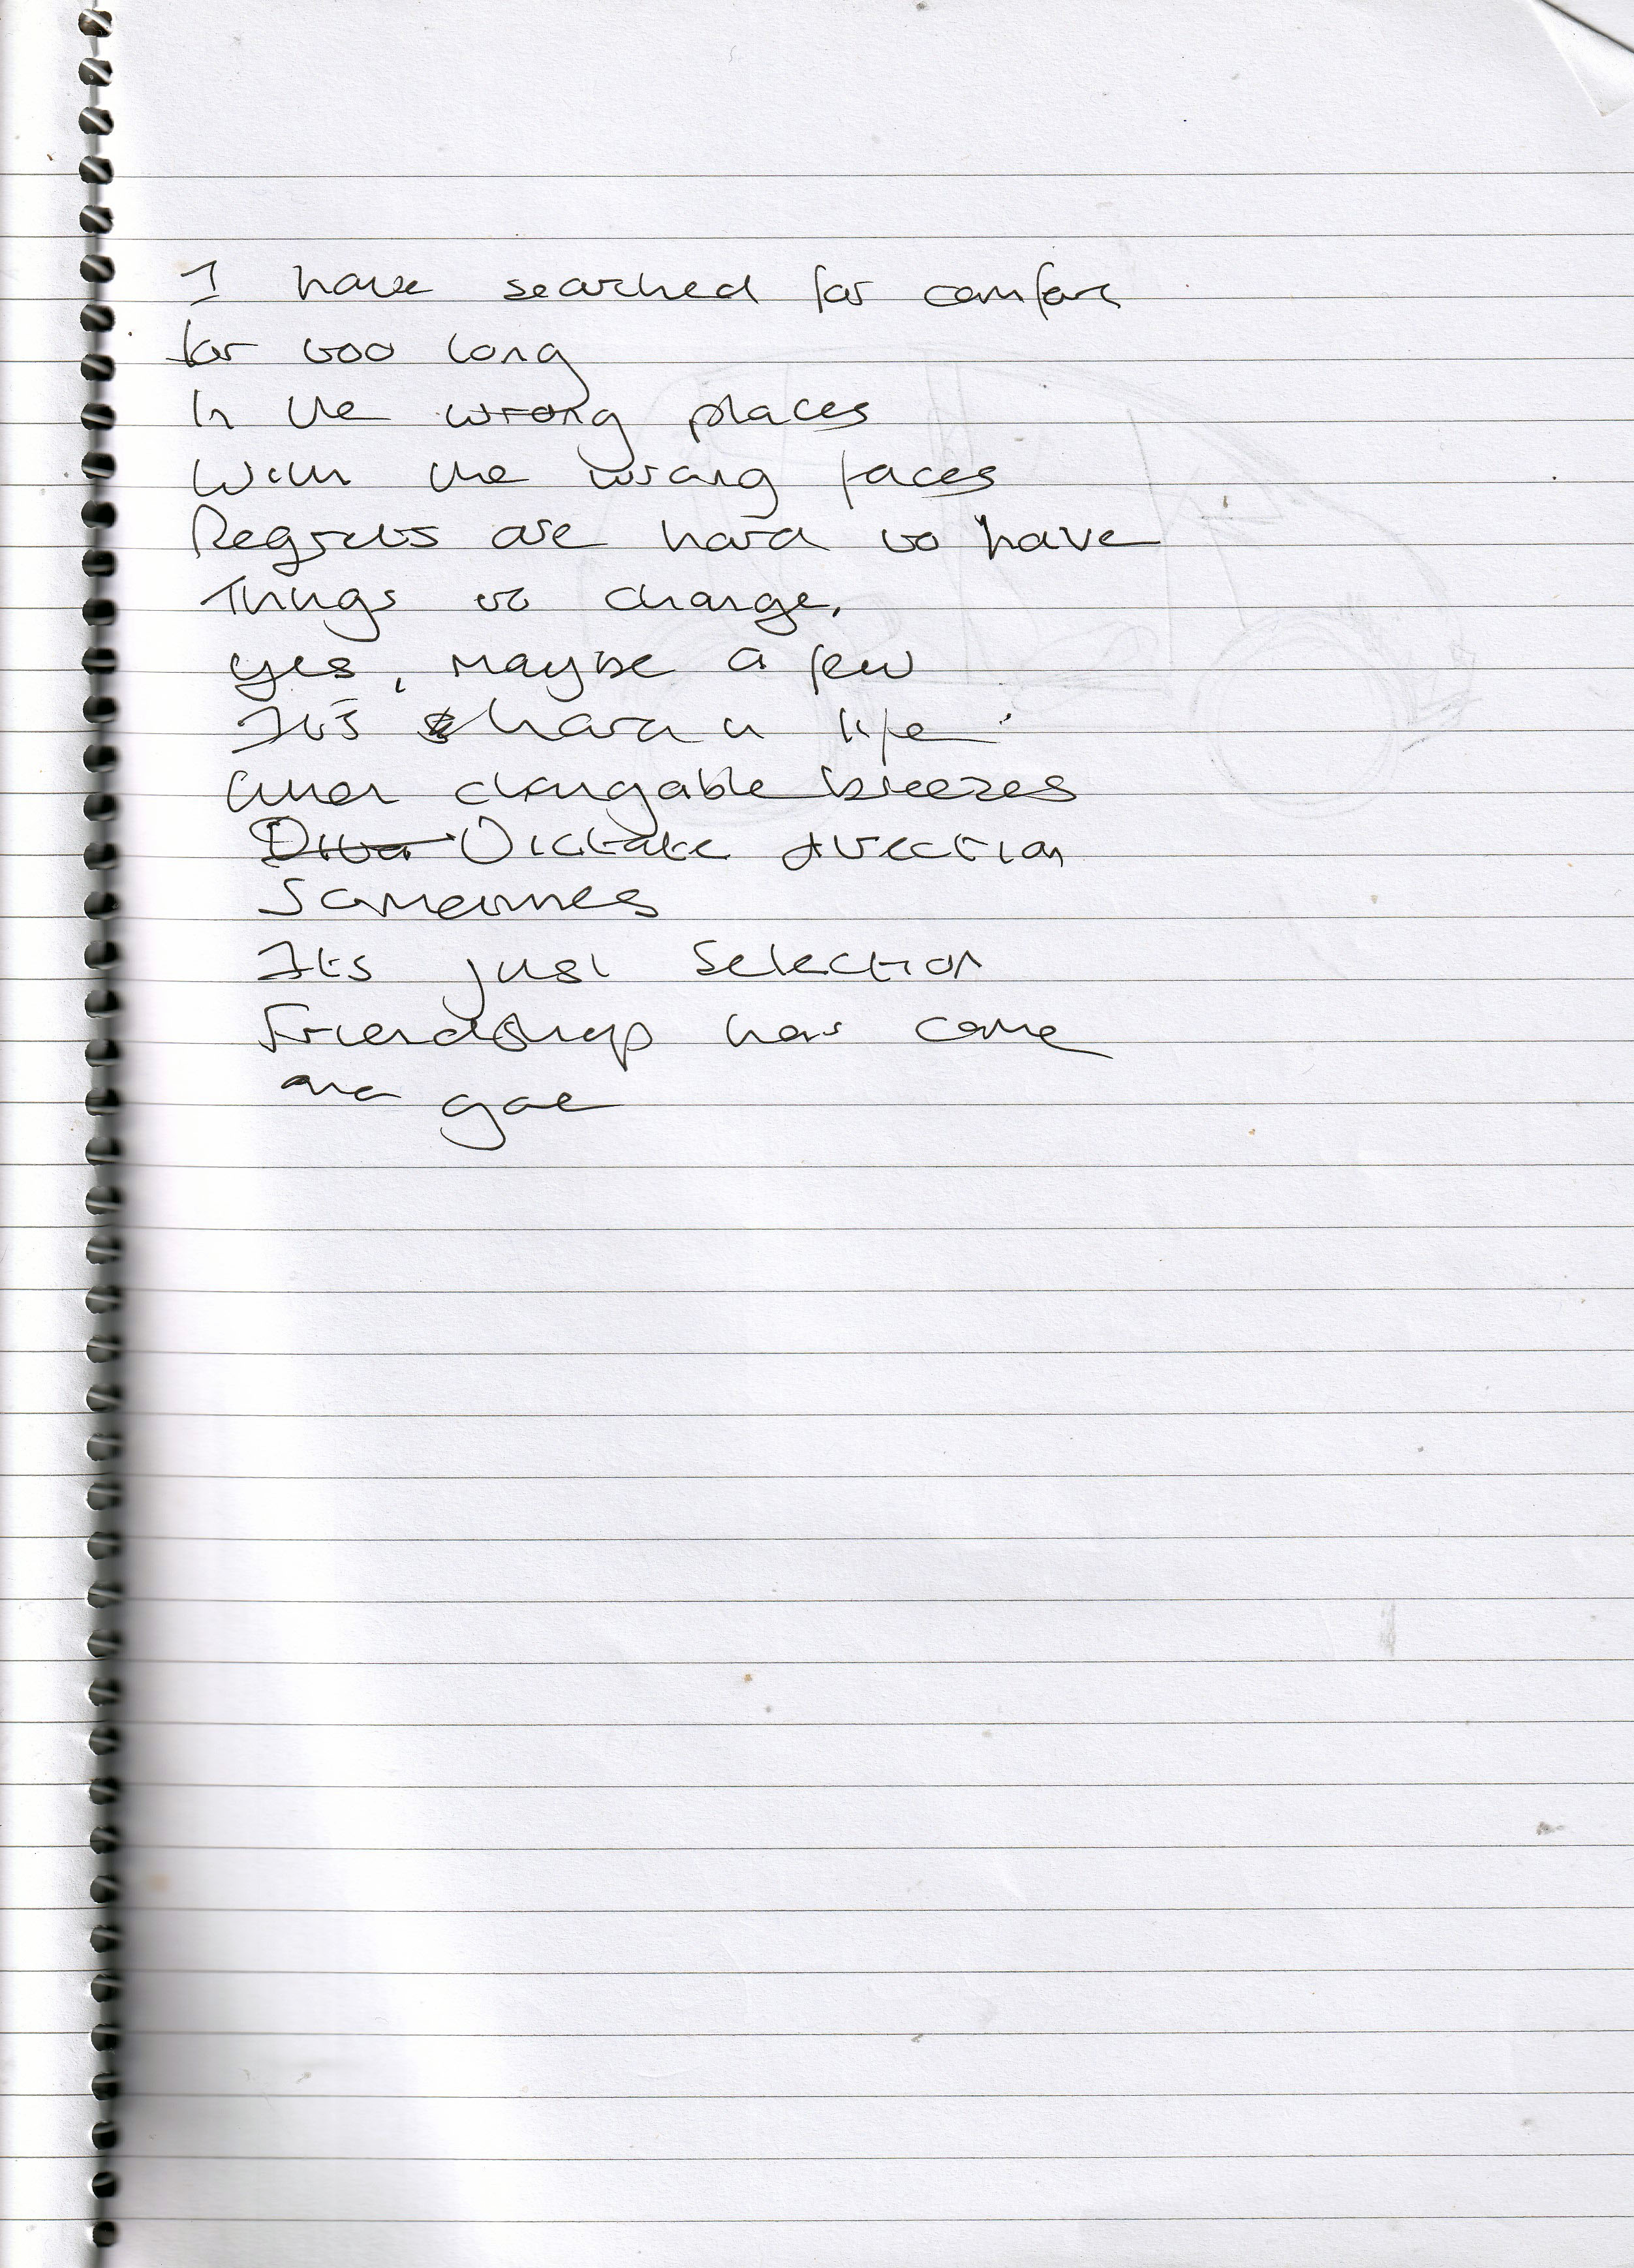 I have searched for comfort
for too long
In the wrong places
With the wrong faces
Regrets are hard to have
Things to change,
yes, maybe a few
It's hard in life
When changable breezes
Dictate direction
Sometimes
Its just Selection
Friendship has come
and goe